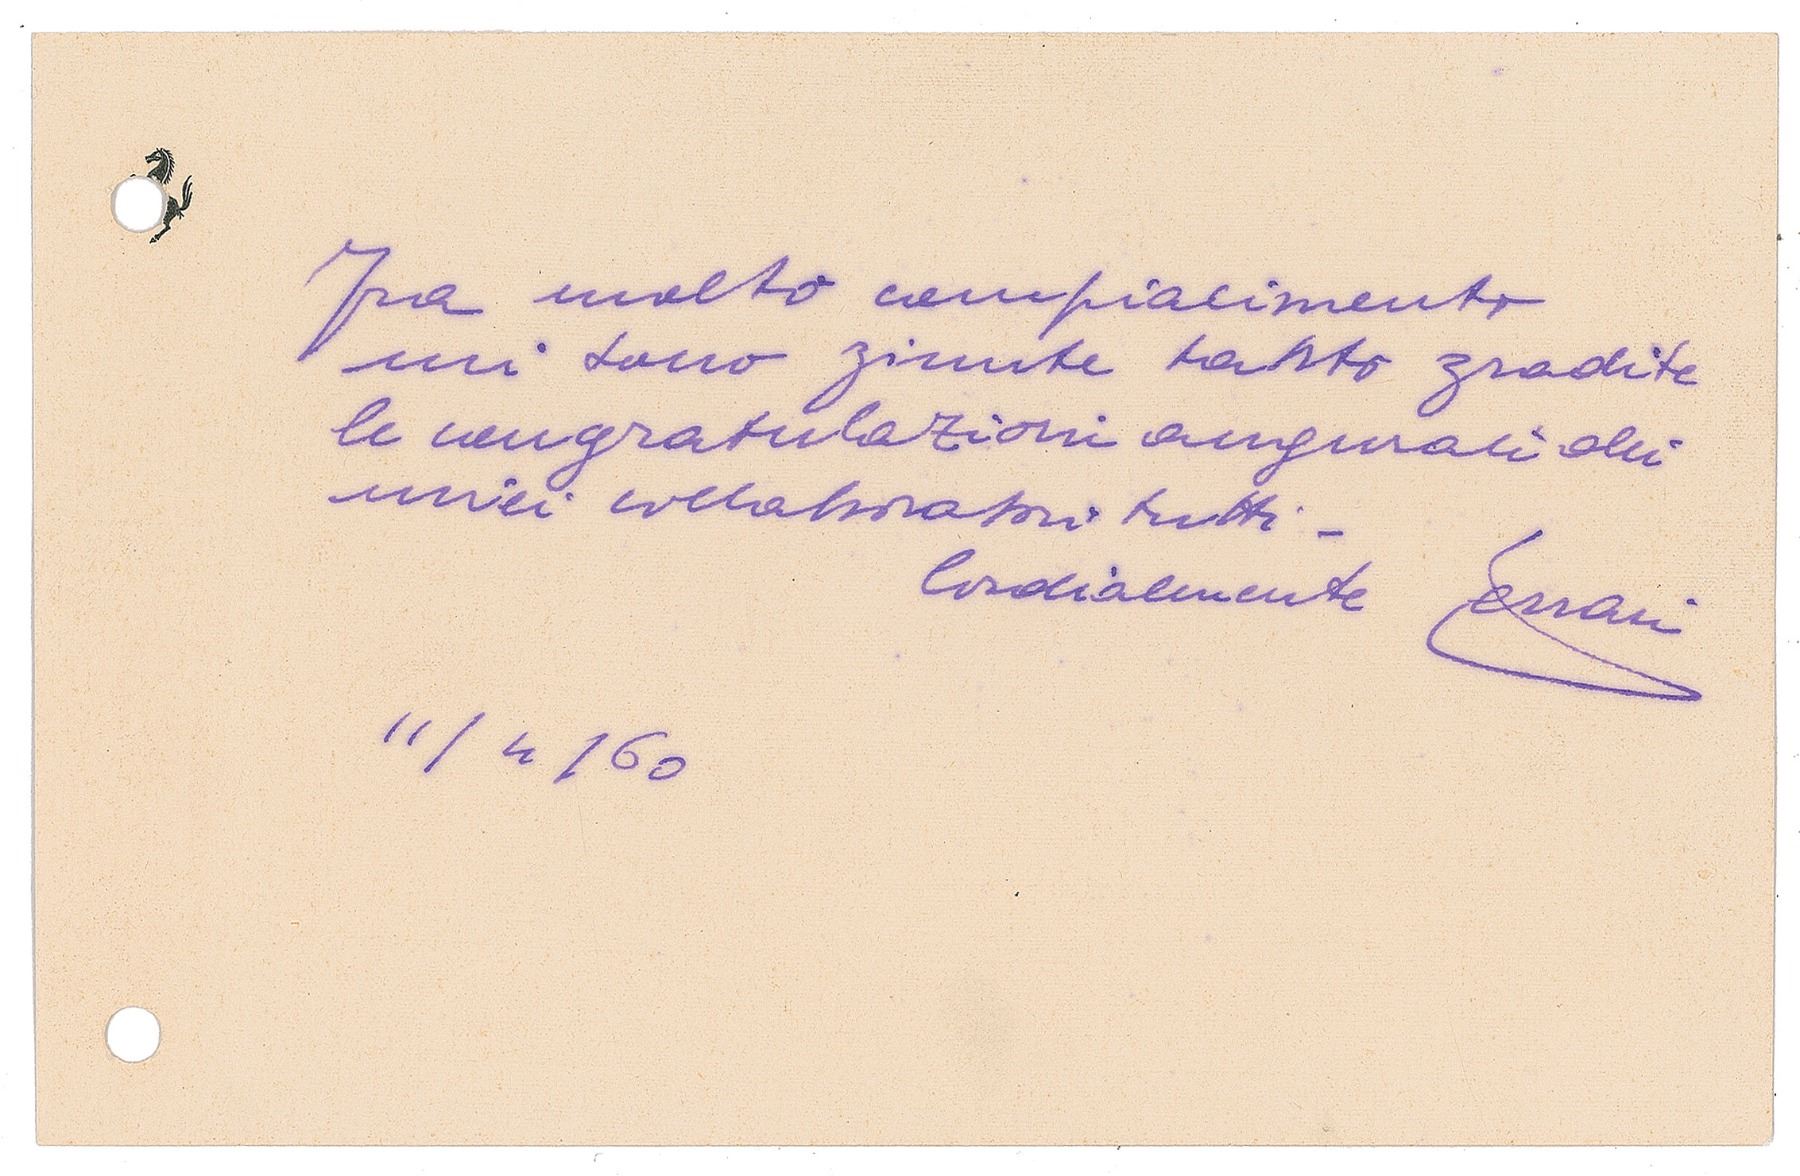 Fra molto compiacimento
mi sono giunte tanto gradite
le congratulazioni augurali dei
miei collaboratori tutti -
Cordialmente Ferrari
11/4/60